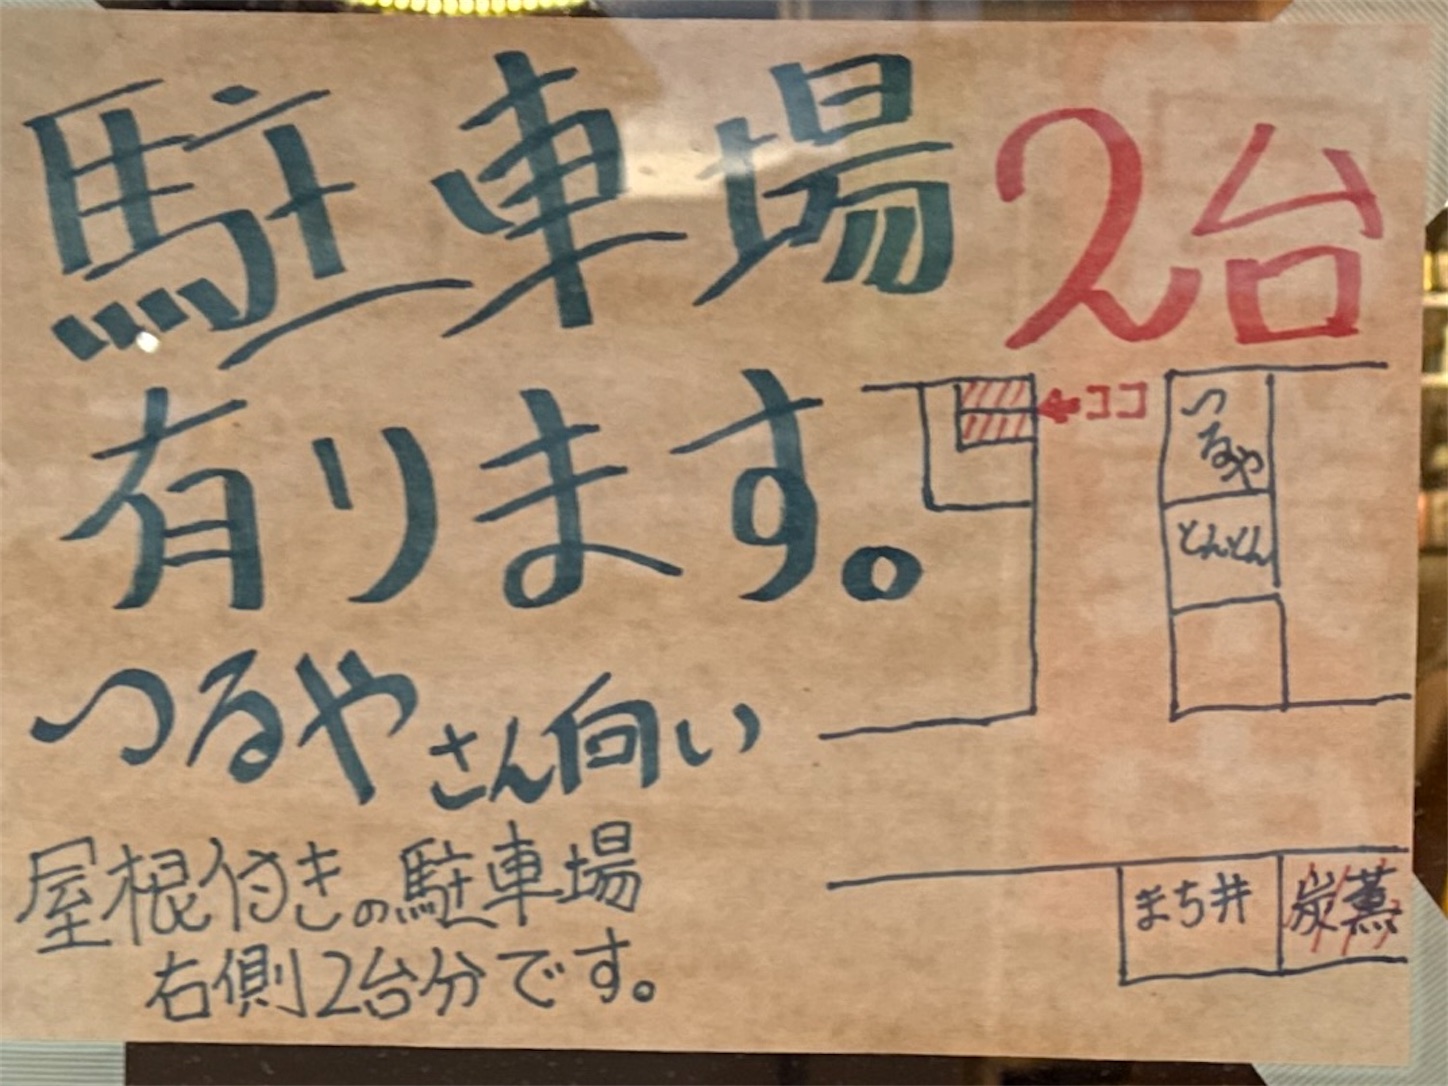 駐車場2台
有ります。
つるやさん向い
屋根付きの駐車場
右側2台分です。
ココ
つるや
とんとん
まち井
炭薫